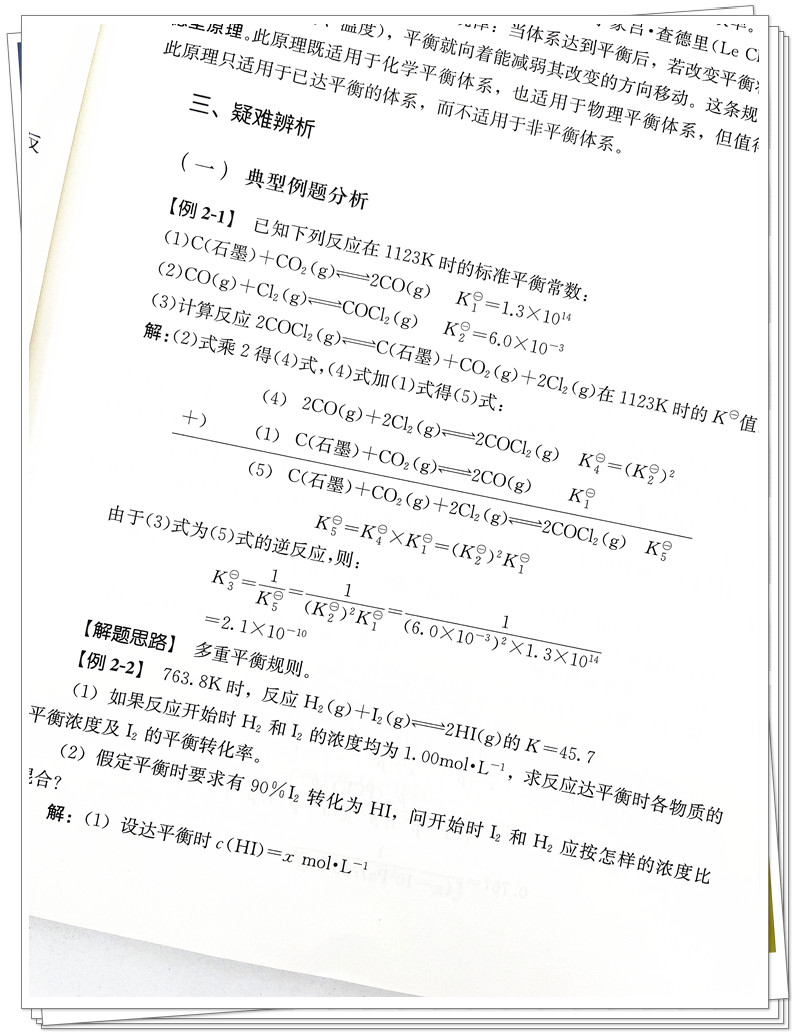 查德里(Le C
、温度)，平衡就向着能减弱其改变的方向移动。这条规
此原理既适用于化学平衡体系，也适用于物理平衡体系，但值得
此原理只适用于已达平衡的体系，而不适用于非平衡体系。
三、疑难辨析
(一) 典型例题分析
【例 2-1】 已知下列反应在 1123K 时的标准平衡常数：
(1)C(石墨)+CO₂(g)⇌2CO(g) K₁⊖=1.3×10¹⁴
(2)CO(g)+Cl₂(g)⇌COCl₂(g) K₂⊖=6.0×10⁻³
(3)计算反应 2COCl₂(g)⇌C(石墨)+CO₂(g)+2Cl₂(g)在 1123K 时的 K⊖值
解：(2)式乘 2 得(4)式，(4)式加(1)式得(5)式：
(4) 2CO(g)+2Cl₂(g)⇌2COCl₂(g) K₄⊖=(K₂⊖)²
+) (1) C(石墨)+CO₂(g)⇌2CO(g) K₁⊖
(5) C(石墨)+CO₂(g)+2Cl₂(g)⇌2COCl₂(g) K₅⊖
K₅⊖=K₄⊖×K₁⊖=(K₂⊖)²K₁⊖
由于(3)式为(5)式的逆反应，则：
K₃⊖=1/K₅⊖=1/((K₂⊖)²K₁⊖)=1/((6.0×10⁻³)²×1.3×10¹⁴)
=2.1×10⁻¹⁰
【解题思路】 多重平衡规则。
【例 2-2】 763.8K 时，反应 H₂(g)+I₂(g)⇌2HI(g)的 K=45.7
(1) 如果反应开始时 H₂ 和 I₂ 的浓度均为 1.00mol•L⁻¹，求反应达平衡时各物质的
平衡浓度及 I₂ 的平衡转化率。
(2) 假定平衡时要求有 90%I₂ 转化为 HI，问开始时 I₂ 和 H₂ 应按怎样的浓度比
混合？
解：(1) 设达平衡时 c(HI)=x mol•L⁻¹